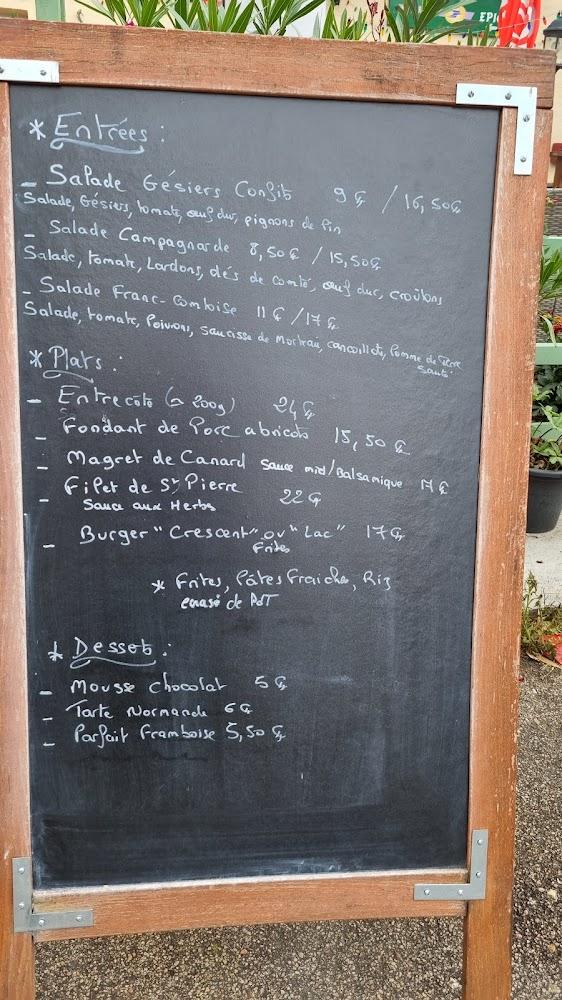 EPI
* Entrées :
- Salade Gésiers Confits 9€ / 16,50€
Salade, Gésiers, tomate, œuf dur, pignons de pin
- Salade Campagnarde 8,50€ / 15,50€
Salade, tomate, Lardons, dés de comté, œuf dur, croûtons
- Salade Franc-Comtoise 11€ / 17€
Salade, tomate, Poivrons, saucisse de Morteau, cancoillotte, Pomme de Terre
sauté
* Plats :
- Entrecôte (≃ 200g) 24€
- Fondant de Porc abricots 15,50€
- Magret de Canard sauce miel/Balsamique 17€
- Filet de St Pierre 22€
Sauce aux Herbes
- Burger "Crescent" ou "Lac" 17€
Frites
* Frites, Pâtes Fraiches, Riz
écrasé de PdT
* Desserts :
- Mousse chocolat 5€
- Tarte Normande 6€
- Parfait Framboise 5,50€